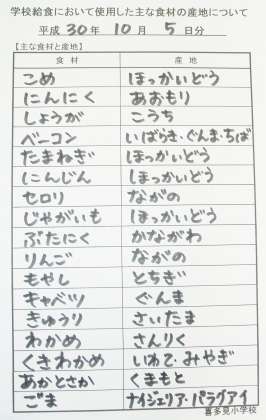 学校給食において使用した主な食材の産地について
平成 30 年 10 月 5 日分
【主な食材と産地】
食材 産地
こめ ほっかいどう
にんにく あおもり
しょうが こうち
ベーコン いばらき・ぐんま・ちば
たまねぎ ほっかいどう
にんじん ほっかいどう
セロリ ながの
じゃがいも ほっかいどう
ぶたにく かながわ
りんご ながの
もやし とちぎ
キャベツ ぐんま
きゅうり さいたま
わかめ さんりく
くきわかめ いわて・みやぎ
あかとさか くまもと
ごま ナイジェリア・パラグアイ
喜多見小学校